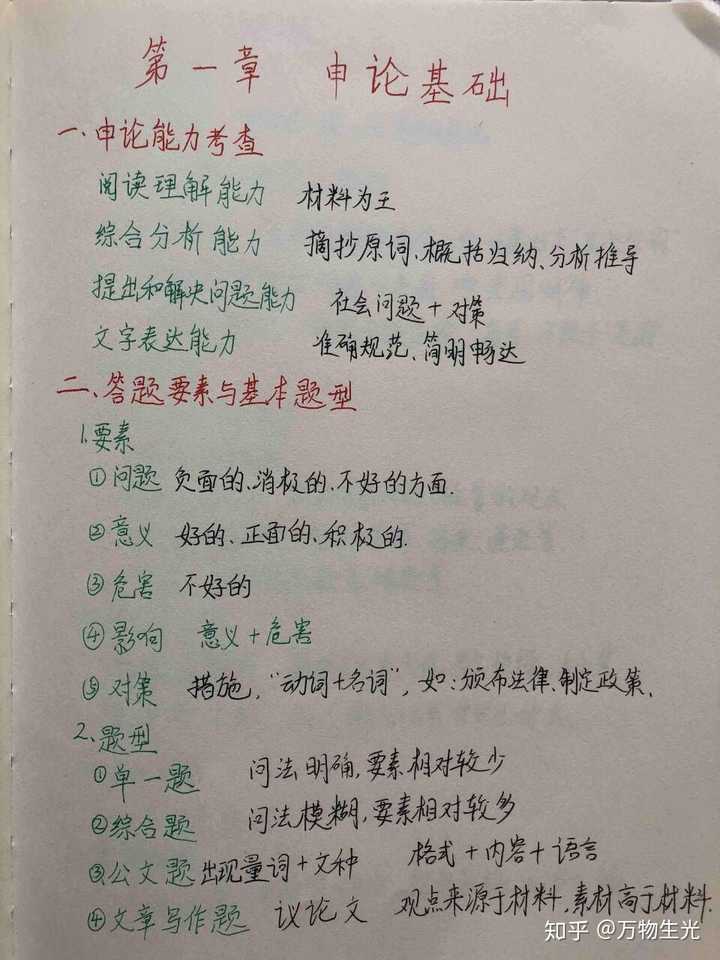 第一章 申论基础
一、申论能力考查
阅读理解能力 材料为王
综合分析能力 摘抄原词、概括归纳、分析推导
提出和解决问题能力 社会问题+对策
文字表达能力 准确规范、简明畅达
二、答题要素与基本题型
1.要素
①问题 负面的、消极的、不好的方面.
②意义 好的、正面的、积极的.
③危害 不好的
④影响 意义+危害
⑤对策 措施,“动词+名词”,如:颁布法律、制定政策.
2、题型
①单一题 问法明确,要素相对较少
②综合题 问法模糊,要素相对较多
③公文题 出现量词+文种 格式+内容+语言
④文章写作题 议论文 观点来源于材料,素材高于材料.
知乎 @万物生光